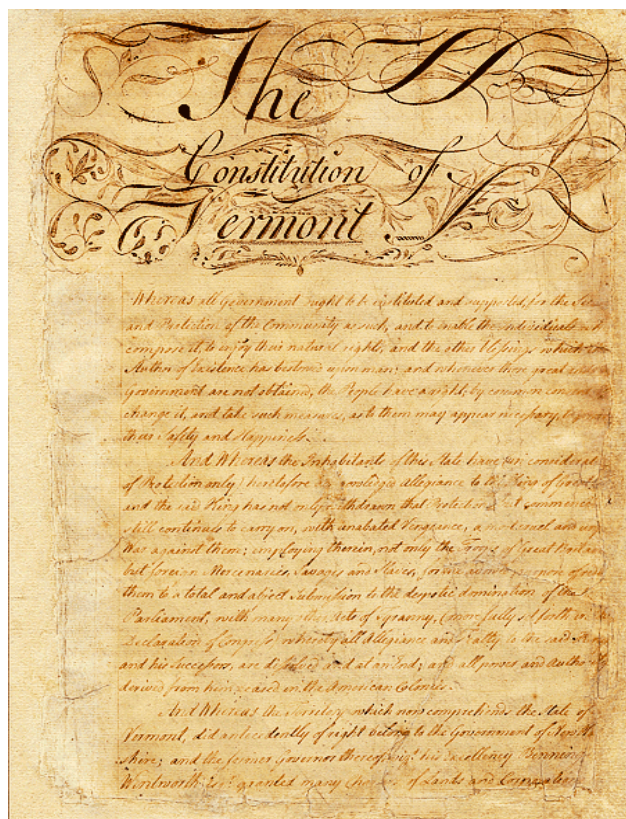 The
Constitution of
Vermont
Whereas all Government ought to be instituted and supported, for the
and Protection of the Community as such, and to enable the individuals
compose it, to enjoy their natural rights, and the other blessings which the
Author of Existence has bestowed upon man; and whenever those great ends of
Government are not obtained, the People have a right, by common consent
change it, and take such measures, as to them may appear necessary to
their Safety and Happiness.
And Whereas the Inhabitants of this State have (in considerat
of Protection only) heretofore acknowledged allegiance to the King of Great
and the said King has not only withdrawn that Protection, but commenced
still continues to carry on, with unabated Vengeance, a most cruel and unj
War against them; employing therein, not only the Troops of Great Britain
but foreign Mercenaries, Savages and Slaves, for the avowed purpose of redu
them to a total and abject Submission to the despotic domination of the
Parliament, with many other Acts of Tyranny, (more fully set forth in the
Declaration of Congress) whereby all Allegiance and Fealty to the said King
and his Successors, are dissolved and at an End; and all power and Authority
derived from him ceased in the American Colonies.
And Whereas the Territory which now comprehends the State of
Vermont, did antecedently of right belong to the Government of New Ha
shire; and the former Governor thereof viz. his Excellency Benning
Wentworth Esqr. granted many Charters of Lands and Corporations